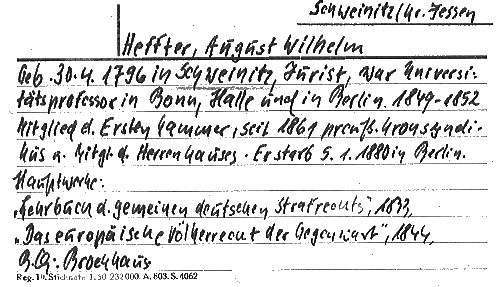 Schweinitz/Kr. Jessen
Heffter, August Wilhelm
Geb. 30.4. 1796 in Schweinitz, Jurist, war Universi-
tätsprofessor in Bonn, Halle und in Berlin. 1849-1852
Mitglied d. Ersten Kammer, seit 1861 preuß. Kronsyndi-
kus u. Mitgl. d. Herrenhauses. Er starb 5. 1. 1880 in Berlin.
Hauptwerke:
„Lehrbuch d. gemeinen deutschen Strafrechts", 1833,
„Das europäische Völkerrecht der Gegenwart", 1844,
B.Qu: Brockhaus
Reg. 10. Stichnote 1. 50 232000. A. 603. S. 4062